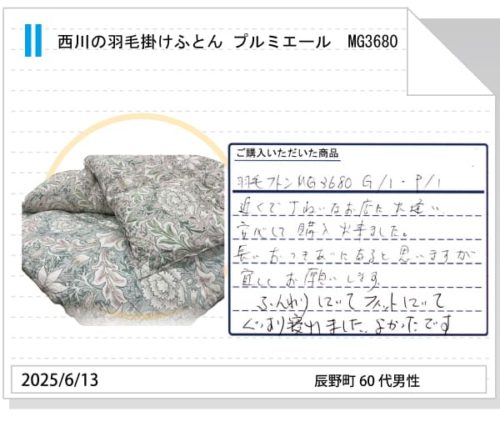 西川の羽毛掛けふとん プルミエール MG3680
ご購入いただいた商品
羽毛フトンMG3680 G/1・P/1
近くで丁ねいなお店に出逢い
安心して購入出来ました。
長いおつきあいになると思いますが
宜しくお願いします。
ふんわりしてて フィットしてて
ぐっすり寝れました。よかったです
2025/6/13
辰野町60代男性